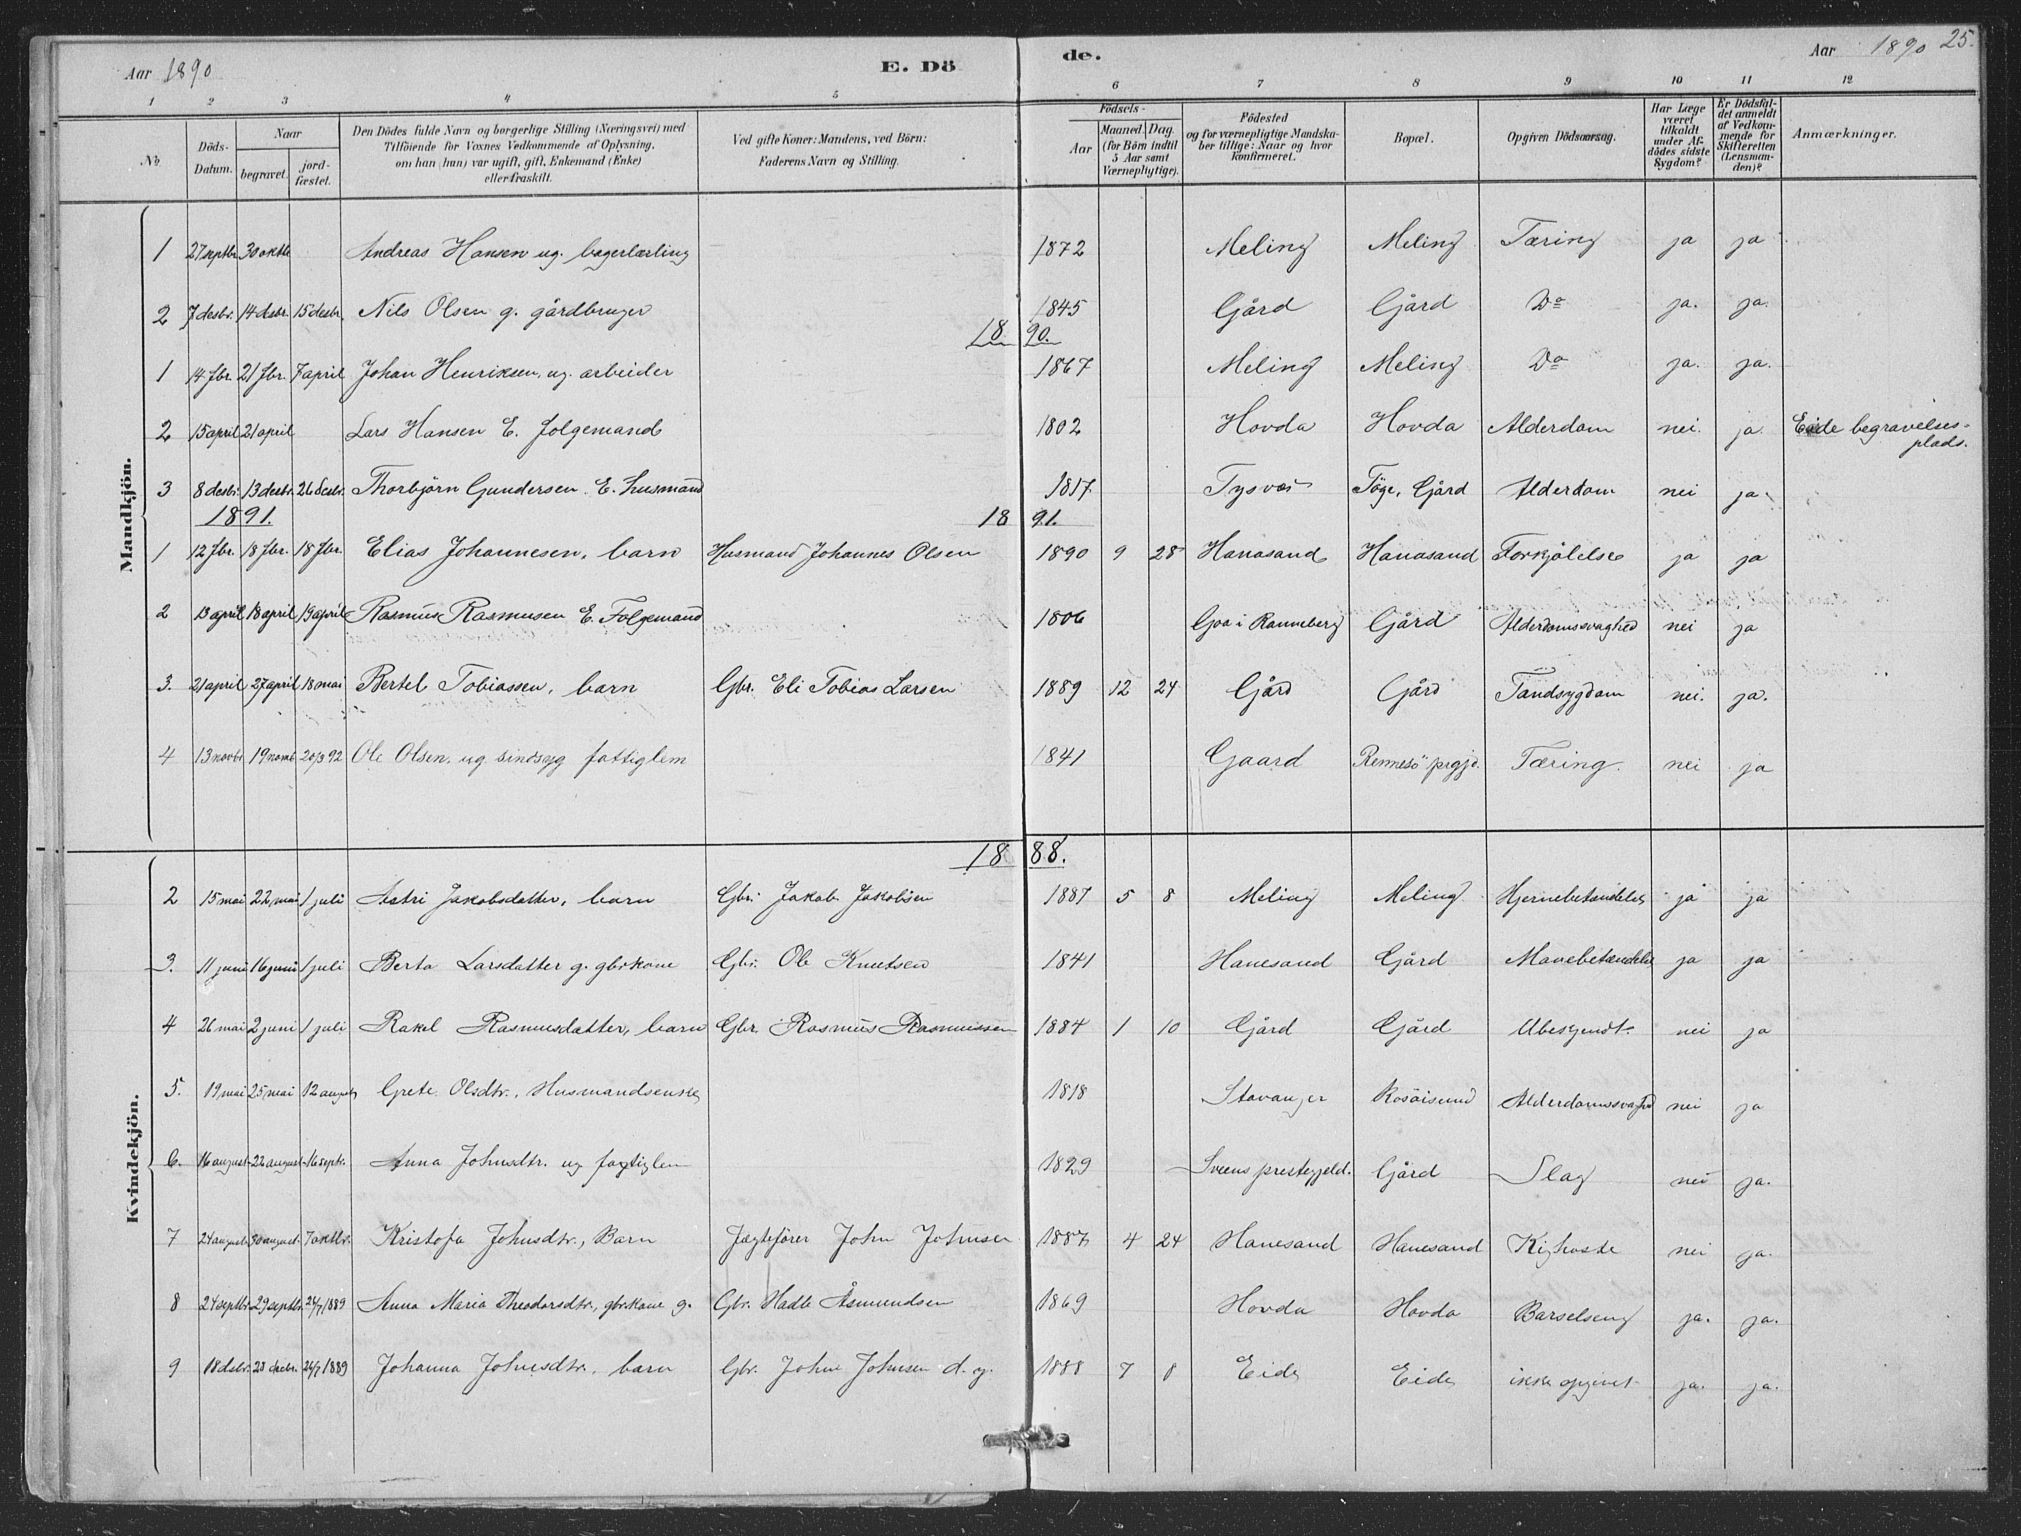 Aar 1890
E. Dö de.
Aar 1890 25.
1 2 3 4 5 6 7 8 9 10 11 12
No. Döds-Datum. Naar begravet. jord-fæstet. Den Dödes fulde Navn og borgerlige Stilling (Næringsvei) med Tilföiende for Voxnes Vedkommende af Oplysning, om han (hun) var ugift, gift, Enkemand (Enke) eller fraskilt. Ved gifte Koner: Mandens, ved Börn: Faderens Navn og Stilling. Födsels- Aar Maaned. Dag. (for Börn indtil 5 Aar samt Værnepligtige). Födested og for værnepligtige Mandska-ber tillige: Naar og hvor konfirmeret. Bopæl. Opgiven Dödsaarsag. Har Læge været tilkaldt under Af-dödes sidste Sygdom? Er Dödsfal-det anmeldt af Vedkom-mende for Skifteretten (Lensman-den)? Anmærkninger.
Mandkjön.
1 27 septbr 30 oktb Andreas Hansen ug. bagerlærling 1872 Meling Meling Tæring ja ja
2 7 desbr. 14 dsbr. 15 desbr. Nils Olsen g. gårdbruger 1845 Gård Gård Do ja. ja.
18 90.
1 14 fbr. 21 fbr. 7 april Johan Henriksen, ug. arbeider 1867 Meling Meling Do ja. ja.
2 15 april 21 april Lars Hansen E. folgemand 1802 Hovda Hovda Alderdom nei. ja. Eide begravelses-
plads.
3 8 desbr. 13 desbr. 26 desbr. Thorbjörn Gundersen E. husmand 1817 Tysvær Töge, Gård Alderdom nei ja.
1891. 18 91.
1 12 fbr. 18 fbr. 18 fbr. Elias Johannesen, barn Husmand Johannes Olsen 1890 9 28 Hanasand Hanasand Forkjölelse ja ja
2 13 april 18 april 19 april Rasmus Rasmusen E. Folgemand 1806 Goa i Ranneberg Gård Alderdomssvaghed nei ja
3. 21 april 27 april 18 mai Bertel Tobiassen, barn Gbr. Eli Tobias Larsen 1889 12 24 Gård Gård Tandsygdom nei. ja.
4 13 novbr 19 novb 20/3 92 Ole Olsen, ug sindsyg fattiglem 1841 Gaard Rennesö prgjd. Tæring. nei ja
18 88.
Kvindekjön.
2 15 mai 22 mai 1 juli Astri Jakobsdatter, barn Gbr. Jakob Jakobsen 1887 5 8 Meling Meling Hjernebetændelse ja ja
3. 11 juni 16 juni 1 juli Berta Larsdatter g. gbrkone Gbr. Ole Knutsen 1841 Hanesand Gård Mavebetændelse ja ja
4 26 mai 2 juni 1 juli Rakel Rasmusdatter, barn Gbr. Rasmus Rasmussen 1884 1 10 Gård Gård Ubekjendt. nei ja
5. 19 mai 25 mai 12 august Grete Olsdtr., Husmandsenke 1818 Stavanger Rosöisund Alderdomssvaghed nei ja
6. 16 august 22 august 16 septr. Anna Johnsdtr. ug fattiglem 1829 Sveens prestegjeld. Gård Slag nei ja.
7 24 august 30 august 7 oktbr. Kristofa Johnsdtr., Barn Jagtefører John Johnsen 1887 4 24 Hanesand Hanesand Kighoste nei ja.
8 24 septbr 29 septbr 24/7 1889 Anna Maria Theodorsdtr, gbrkone g. Gbr. Hadle Åsmundsen 1869 Hovda Hovda Barselseng ja. ja.
9 18 dsbr. 23 desbr. 24/7 1889 Johanna Johnsdtr. barn Gbr. John Johnsen d. y. 1888 7 8 Eide Eide ikke opgivet ja. ja.